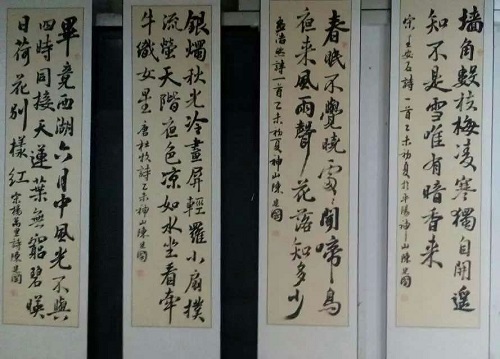 墙角數枝梅凌寒獨自開遥
知不是雪唯有暗香来
宋王安石詩一首乙未初夏於平陽神山陳國
春眠不覺曉處〻聞啼鳥
夜来風雨聲花落知多少
孟浩然詩一首乙未初夏神山陳國
銀燭秋光冷畫屏輕羅小扇撲
流螢天階夜色凉如水坐看牽
牛織女星 唐杜牧詩乙未神山陳國
畢竟西湖六月中風光不與
四時同接天蓮葉無窮碧映
日荷花别樣紅 宋楊萬里詩陳國